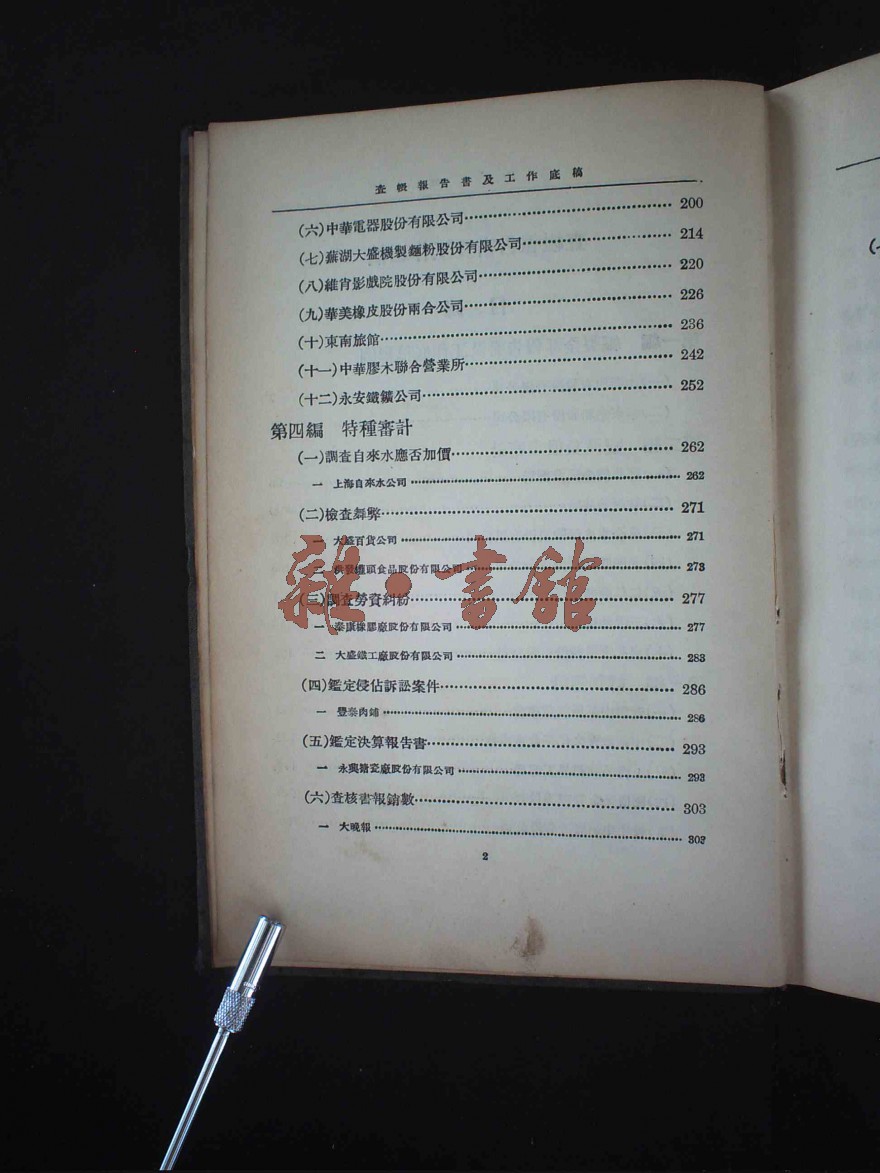 查帳報告書及工作底稿
(六)中華電器股份有限公司 200
(七)蕪湖大盛機製麵粉股份有限公司 214
(八)維肯影戲院股份有限公司 220
(九)華美橡皮股份兩合公司 226
(十)東南旅館 236
(十一)中華膠木聯合營業所 242
(十二)永安鐵鑛公司 252
第四編 特種審計
(一)調查自來水應否加價 262
一 上海自來水公司 262
(二)檢查舞弊 271
一 大盛百貨公司 271
二 罐頭食品股份有限公司 273
(三)調查勞資糾紛 277
一 泰康橡膠廠股份有限公司 277
二 大盛鐵工廠股份有限公司 283
(四)鑑定侵佔訴訟案件 286
一 豐泰肉鋪 286
(五)鑑定決算報告書 293
一 永興搪瓷廠股份有限公司 293
(六)查核書報銷數 303
一 大晚報 303
2
雜·書館